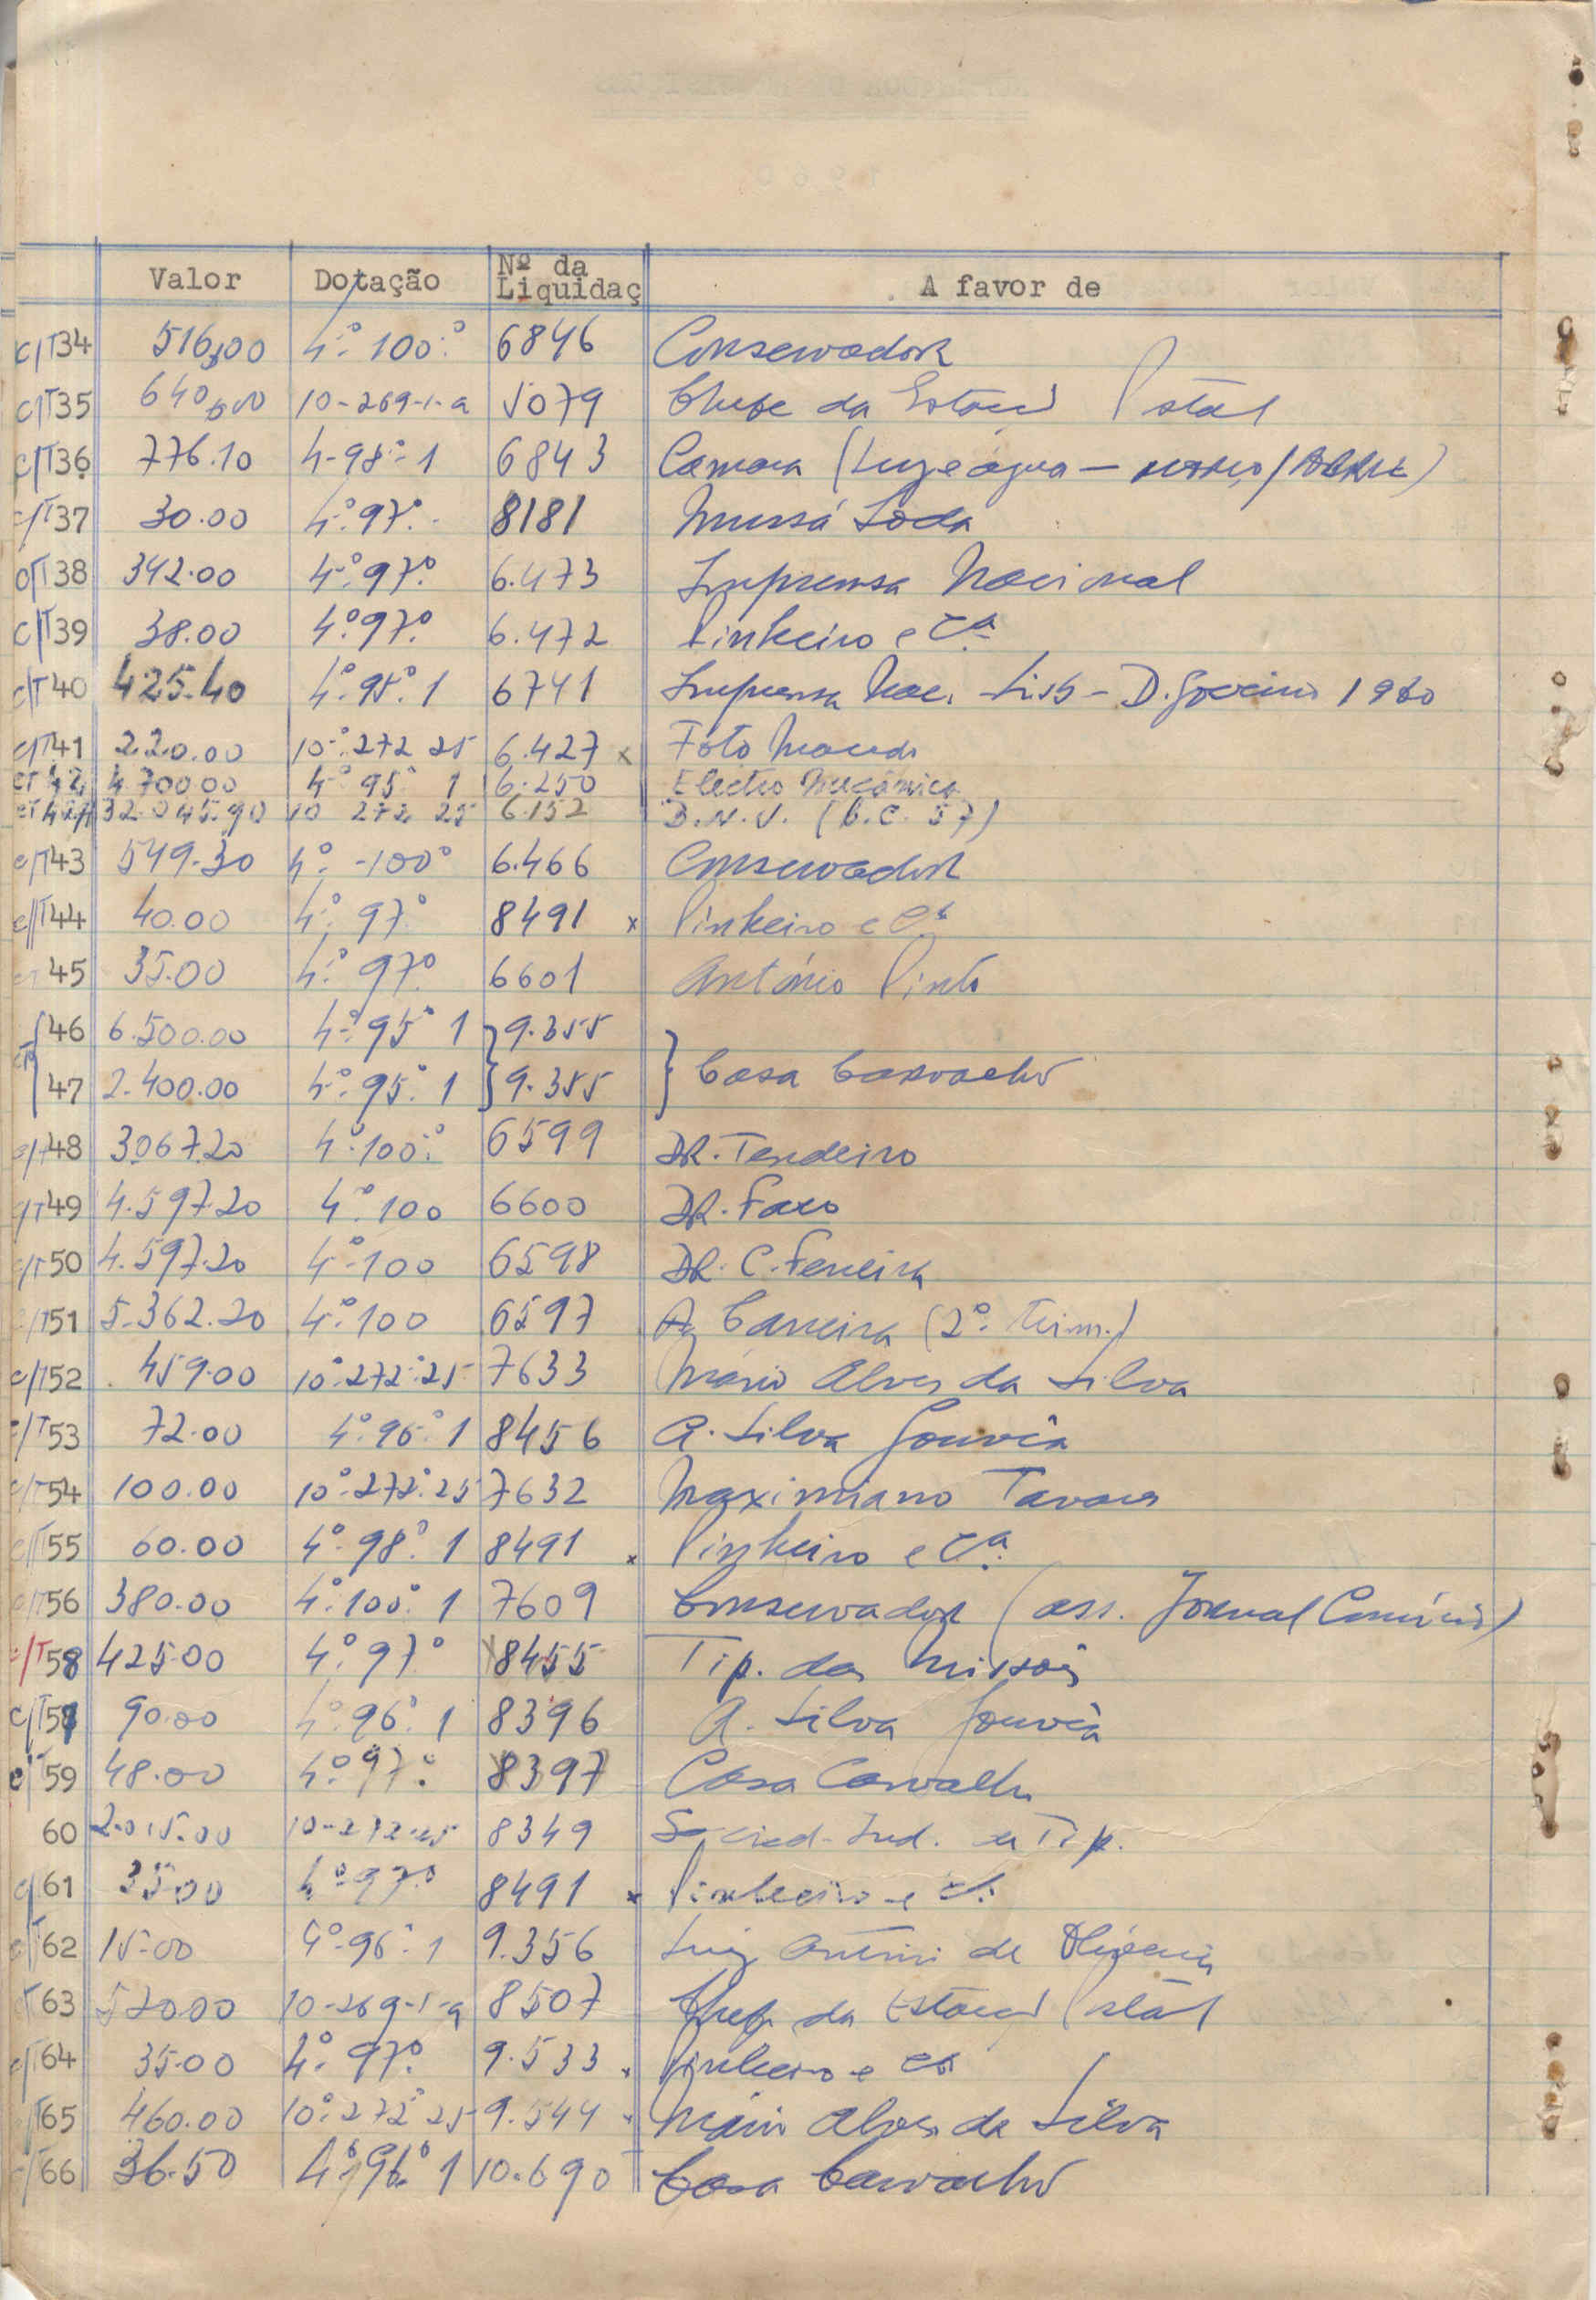 Valor Dotação Nº da Liquidaç A favor de
C/T34 516,00 4º.100.º 6846 Conservador
C/T35 640,00 10-269-1-a 5079 Chefe da Estação Postal
C/T36 776.10 4-98º-1 6843 Camara (Luz e água — MARÇO/ABRIL)
C/T37 30.00 4º.97º. 8181 Mussá Loda
C/T38 342.00 4º.97º. 6.473 Imprensa Nacional
C/T39 38.00 4º.97º. 6.472 Pinheiro e Cª.
C/T40 425.40 4º.95º.1 6741 Imprensa Nac. Lisb - D. Governo 1960
C/T41 220.00 10º.272 25 6.427 x Foto
CT 42 4.700 00 4º 95º 1 6.250 Electro Mecânica
CT 42A 32.045.90 10 272 25 6.152 B.N.U. (B.C. 57)
C/T43 549.30 4º.-100º 6.466 Conservador
C/T44 40.00 4º. 97º 8491 x Pinheiro e Cª
CT 45 35.00 4º. 97º. 6601 António Pinto
46 6.500.00 4º.95º 1 9.355
CT Casa Carvalho
47 2.400.00 4º.95º.1 9.355
C/T48 3.067.20 4º.100º. 6599 DR. Tendeiro
C/T49 4.597.20 4º.100 6600 DR. Faro
C/T50 4.597.20 4º-100 6598 DR. C. Ferreira
C/T51 5.362.20 4º.100 6597 A. Carreira (2º. Trim.)
C/T52 459.00 10º.272º.25 7633 Mário Alves da Silva
C/T53 72.00 4º.96º.1 8456 A. Silva Gouvêa
C/T54 100.00 10º.272º.25 7632 Maximiano Tavares
C/T55 60.00 4º.98º.1 8491 x Pinheiro e Cª.
C/T56 380.00 4º.100º.1 7609 Conservador (ass. Jornal Comércio)
C/T58 425.00 4º.97º 8455 Tip. das Missões
C/T57 90.00 4º.96º.1 8396 A. Silva Gouvêa
C/T59 48.00 4º.97º. 8397 Casa Carvalho
60 2.015.00 10-272-25 8349 Socied. Ind. de Tip.
C/61 35.00 4º.97º 8491 x Pinheiro e Cª.
C/T62 15.00 4º.96º.1 9.356 Luiz António de Oliveira
C/T63 520.00 10-269-1-a 8507 Chefe da Estação Postal
C/T64 35.00 4º.97º. 9.533 x Pinheiro e Cª
C/T65 460.00 10º.272º 25 9.544 x Mário Alves da Silva
C/T66 36.50 4º.96º.1 10.690 Casa Carvalho